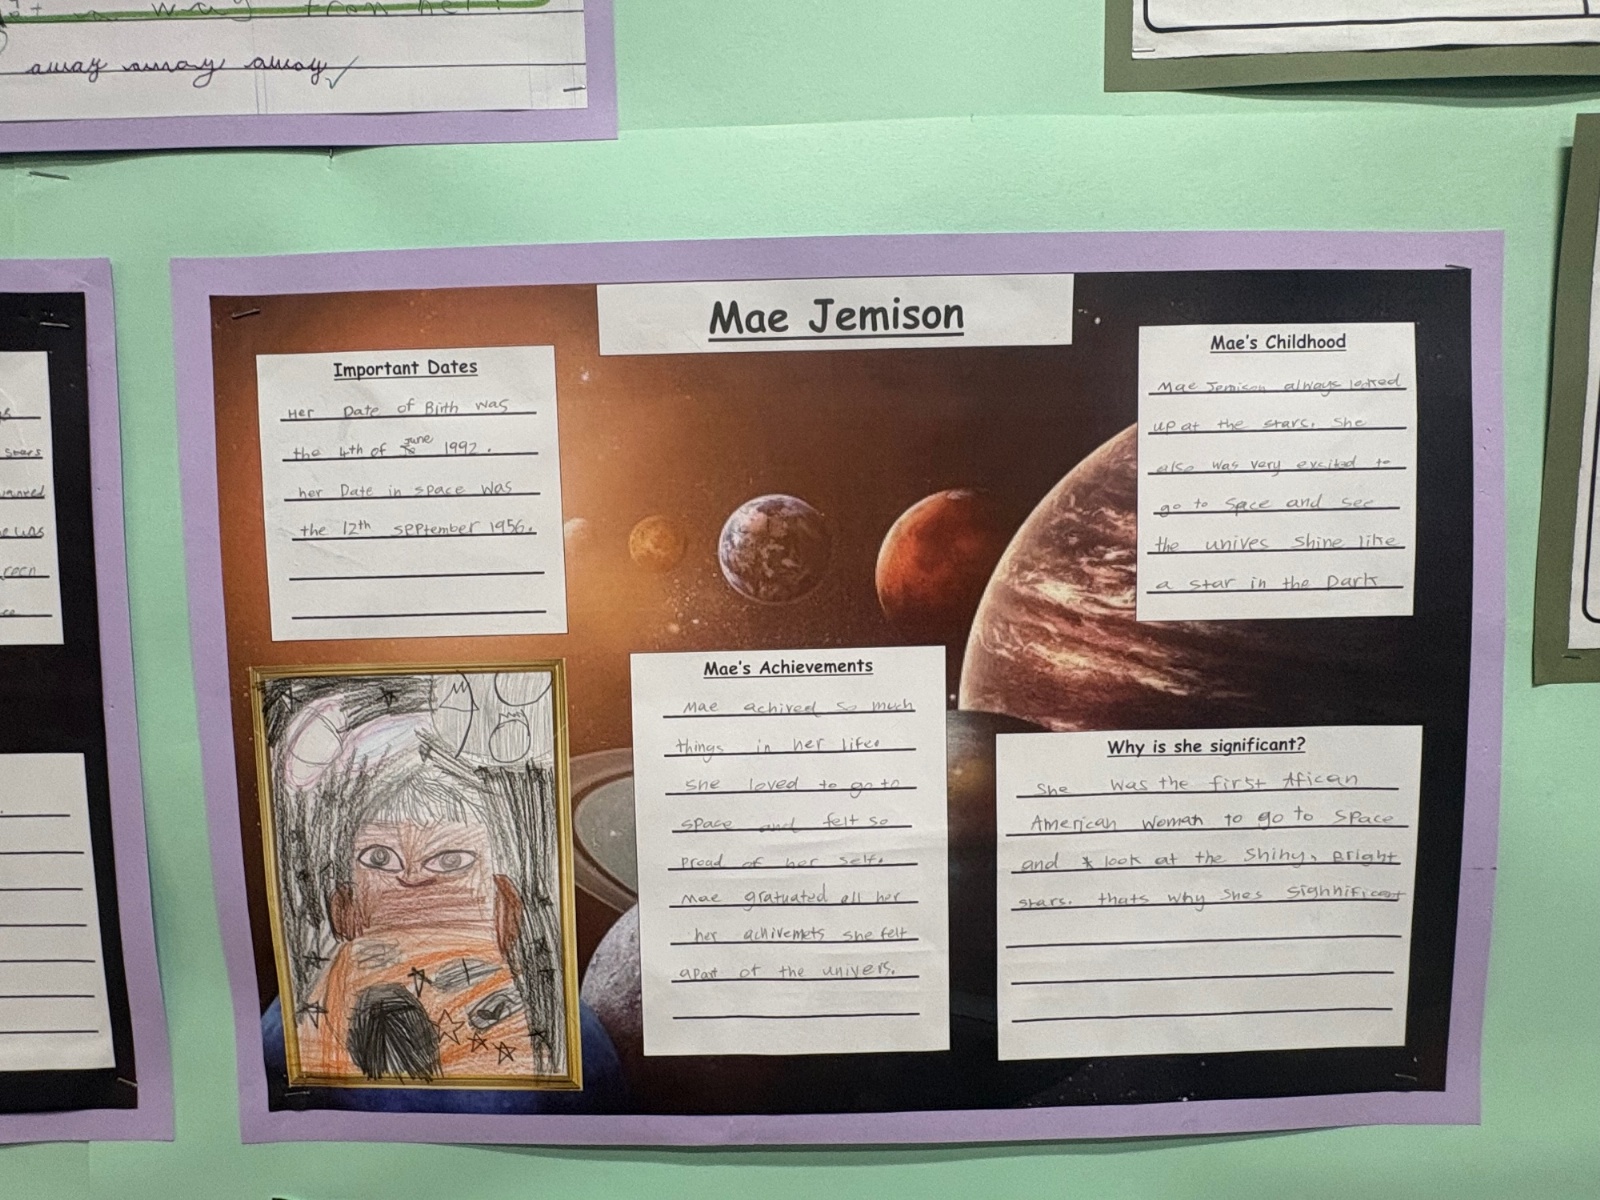 away away away
Mae Jemison
Important Dates
Her Date of Birth was
the 4th of June 1992.
her Date in space was
the 12th september 1956.
Mae's Childhood
Mae Jemison always looked
up at the stars. She
also was very excited to
go to space and see
the unives shine like
a star in the Dark
Mae's Achievements
Mae achived so much
things in her life.
she loved to go to
space and felt so
proad of her self.
Mae gratuated all her
her achivemets she felt
apart of the univers.
Why is she significant?
She was the first Afican
American woman to go to space
and look at the shiny, Bright
stars. thats why shes sighnificant
stars
wanted
e was